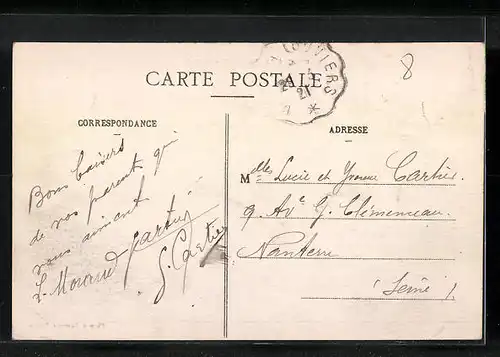 CARTE POSTALE
CORRESPONDANCE
ADRESSE
8
Bons baisers
de nos parents qui
vous aiment
Cartier
G. Cartier
Mdlles Lucie et Yvonne Cartier
9. Ave G. Clémenceau
Nanterre
(Seine)